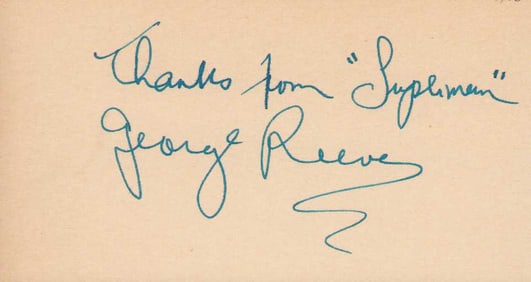 Thanks from "Superman"
George Reeves